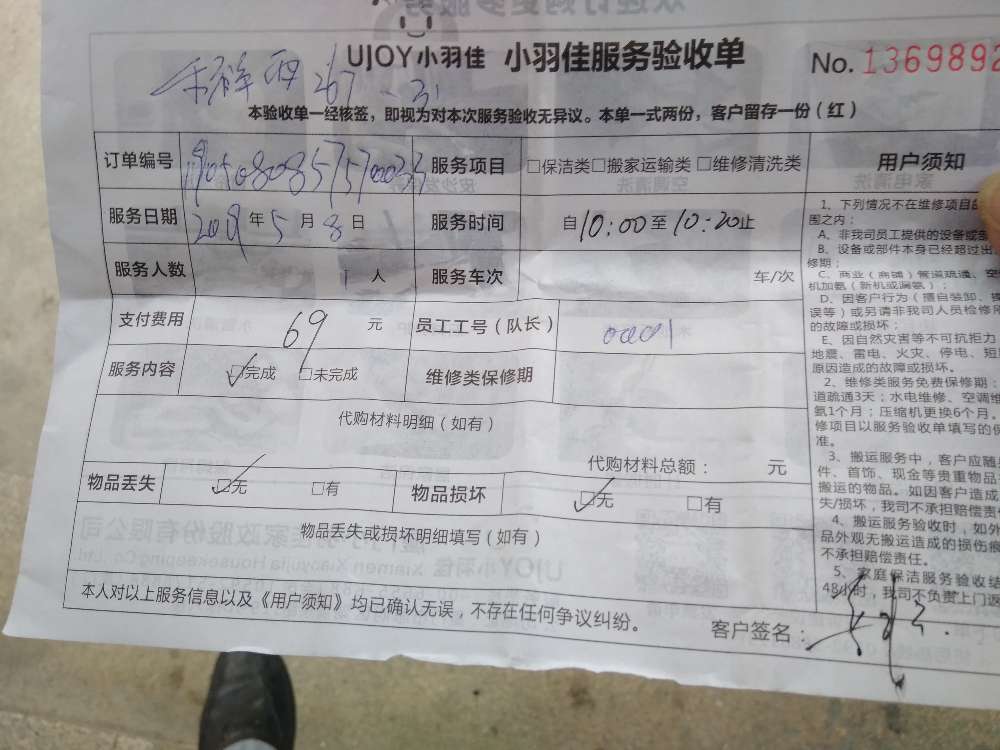 UJOY小羽佳 小羽佳服务验收单 No. 1369892
267
本验收单一经核签，即视为对本次服务验收无异议。本单一式两份，客户留存一份（红）
订单编号 服务项目 □保洁类□搬家运输类□维修清洗类
服务日期 2019年5月8日 服务时间 自10:00至10:20止
服务人数 1人 服务车次 车/次
支付费用 69 元 员工工号（队长） 0001
服务内容 □完成 □未完成 维修类保修期
代购材料明细（如有）
代购材料总额： 元
物品丢失 □无 □有 物品损坏 □无 □有
物品丢失或损坏明细填写（如有）
本人对以上服务信息以及《用户须知》均已确认无误，不存在任何争议纠纷。
客户签名：
用户须知
1、下列情况不在维修项目
围之内：
A、非我司员工提供的设备或
B、设备或部件本身已经超过出
修期；
C、商业（商铺）管道疏通、空
机加氨（新机或漏氨）；
D、因客户行为（擅自装卸、
误等）或另请非我司人员检修
的故障或损坏；
E、因自然灾害等不可抗拒力
地震、雷电、火灾、停电、短
原因造成的故障或损坏。
2、维修类服务免费保修期：
道疏通3天；水电维修、空调维
氨1个月；压缩机更换6个月。
修项目以服务验收单填写的保
准。
3、搬运服务中，客户应随
件、首饰、现金等贵重物品
搬运的物品。如因客户造成
失/损坏，我司不承担赔偿责
4、搬运服务验收时，如外
品外观无搬运造成的损伤痕
不承担赔偿责任。
5、家庭保洁服务验收结
48小时，我司不负责上门返